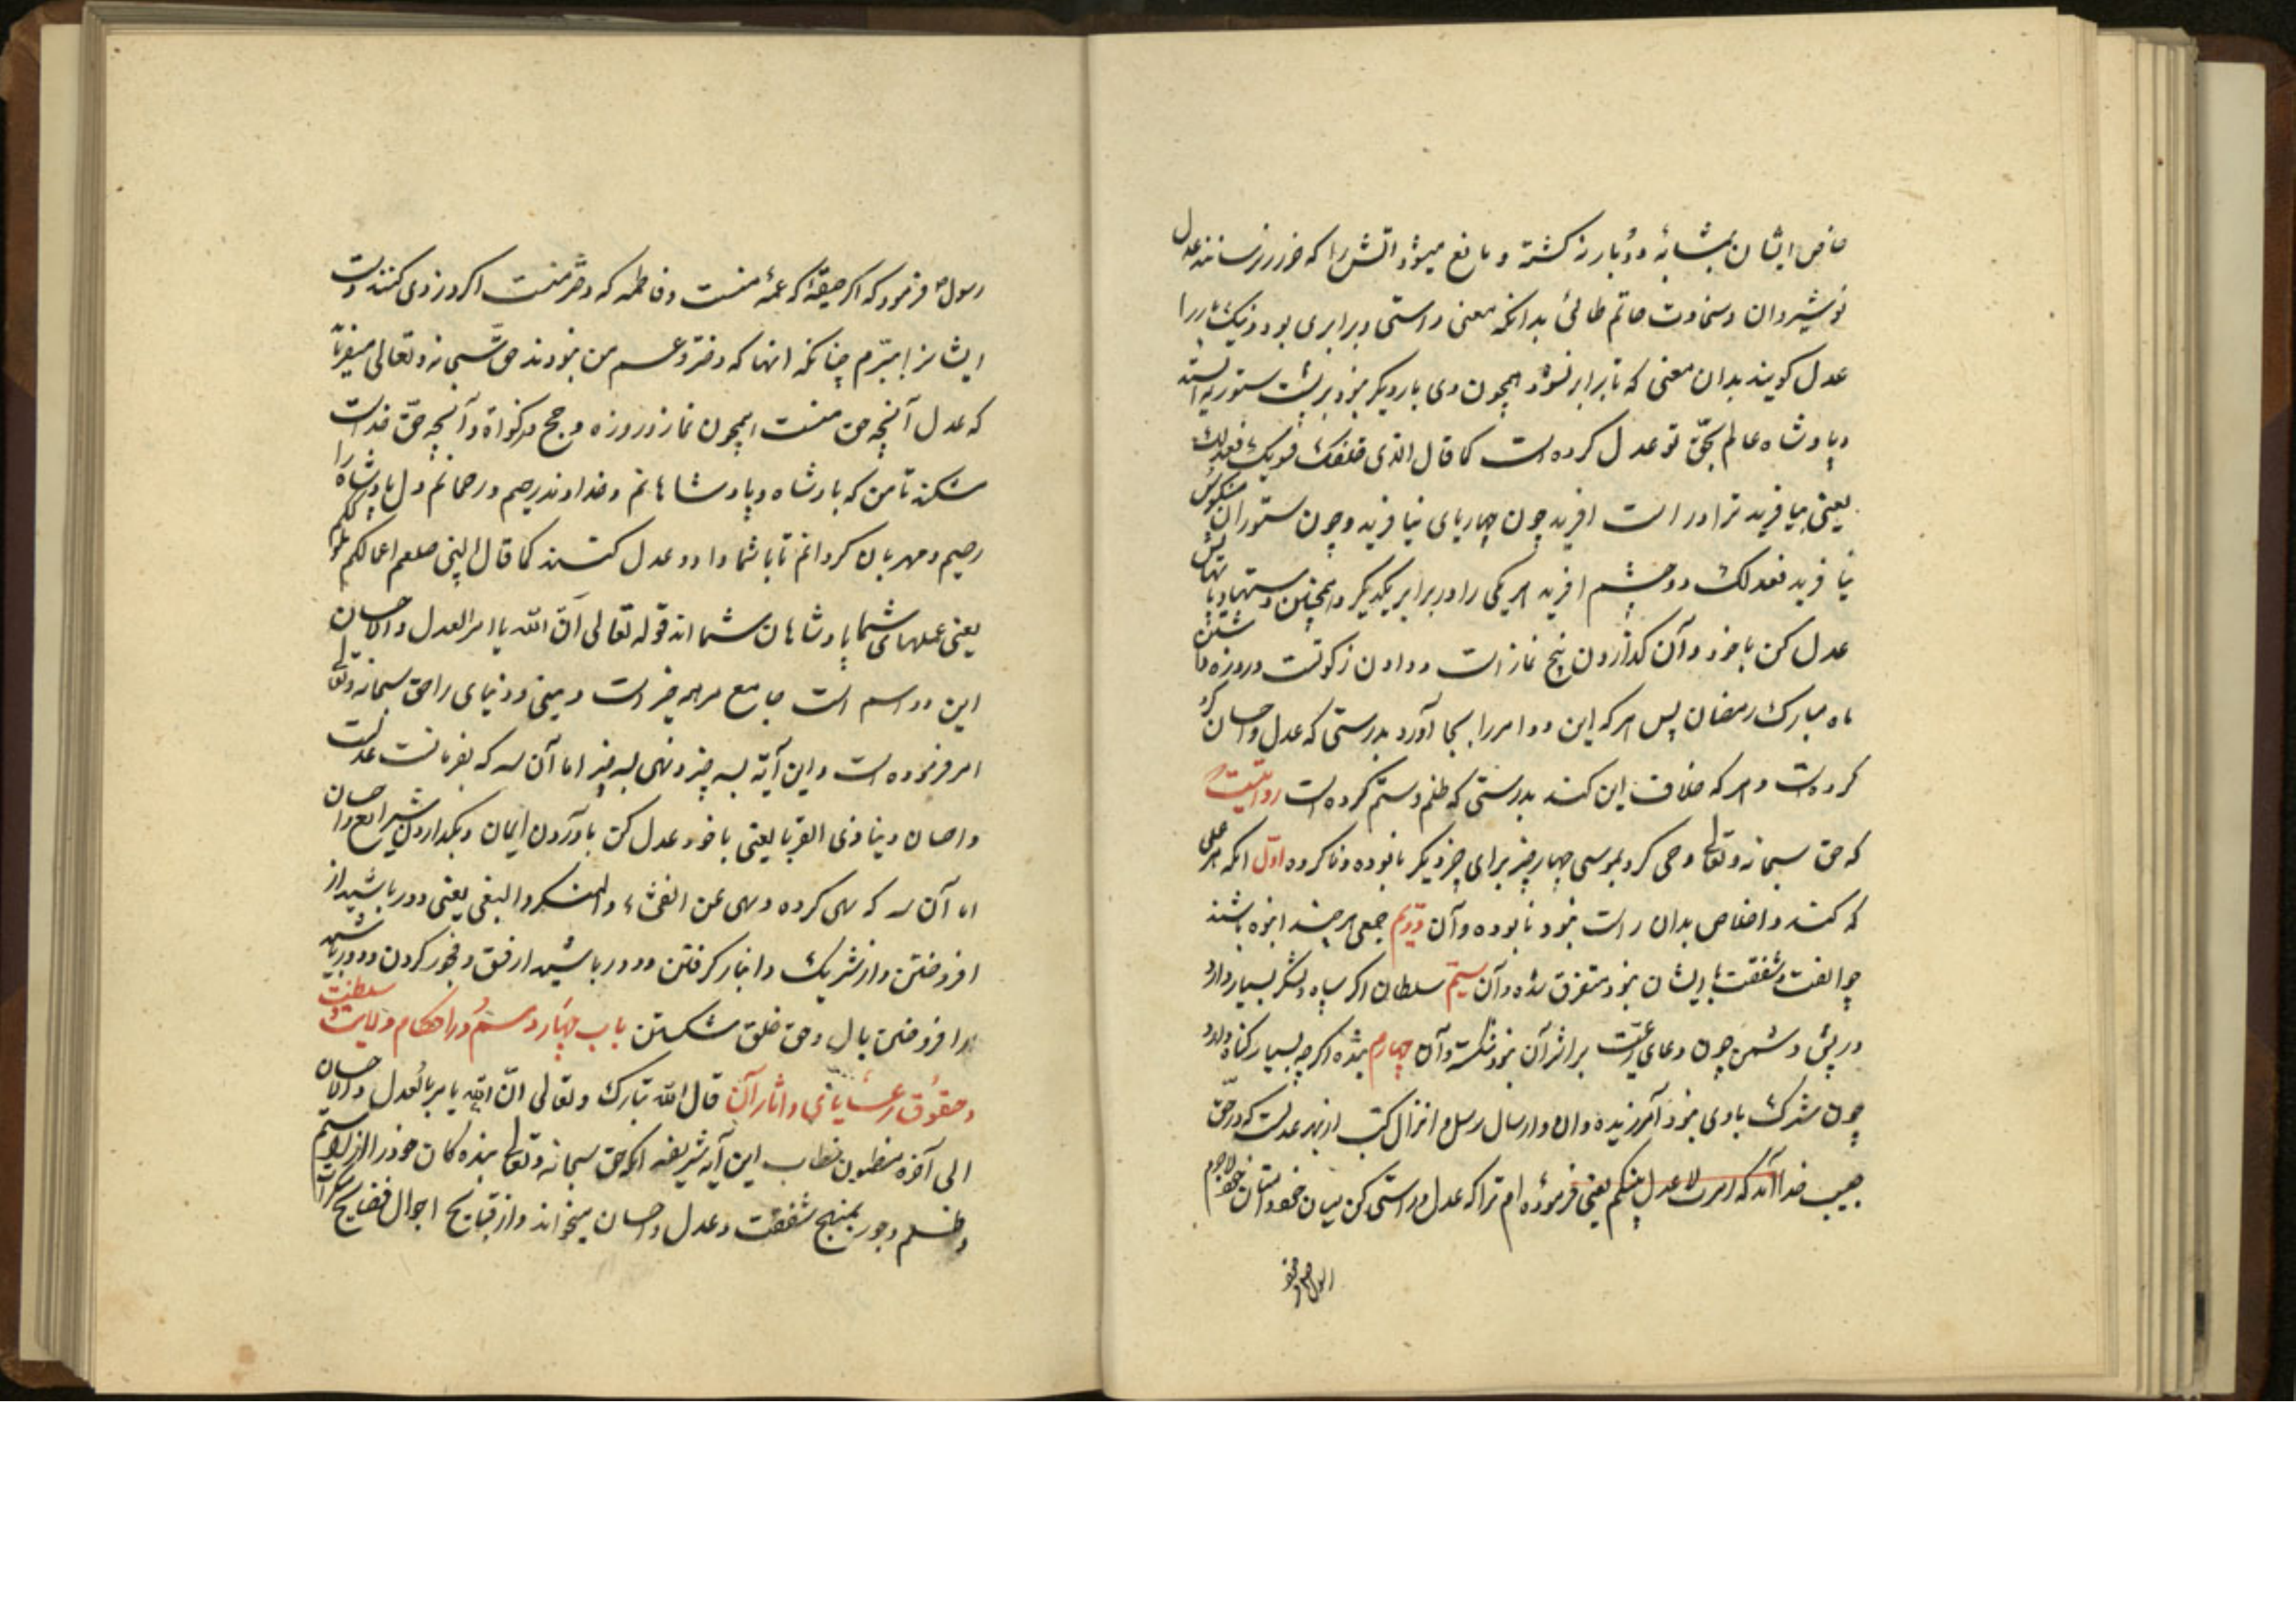 خاص ایشان بمثابه دو بار نه کشته و مانع میشود اتش را که ضرر نرسانند عدل
نوشیروان و سخاوت حاتم طائی بدانکه معنی راستی و برابری بود و نیک بار را
عدل کویند بدان معنی که تا برابر نشود همچون وی بار دیکر نبود بر پشت ستور نه ایستد
و پادشاه عالم بحق تو عدل کرده است کما قال الذی خلقک فسویک فعدلک
یعنی بیافرید ترا و راست افرید چون چهارپای نیافرید و چون ستوران منکوس
نیافرید فعدلک دو چشم افرید هر یکی را در برابر یکدیکر و همچنین دستها و پایها پس
عدل کن با خود و آن کذاردن پنج نماز است و دادن زکوتست و روزه داشتن
ماه مبارک رمضان پس هر که این دو امر را بجا آورد بدرستی که عدل و احسان کرد
کرده است و هر که خلاف این کند بدرستی که ظلم و ستم کرده است روایتست
که حق سبحانه و تعالی وحی کرد بموسی چهار چیز برای چیز دیکر نابوده و ناکرده اول انکه هر عملی
که کند و اخلاص بدان راست نبود نابوده و آن دویم جمعی هر چند انبوه باشند
چو الفت و شفقت با ایشان نبود متفرق شده و آن سیم سلطان اکر سپاه و لشکر بسیار دارد
در پیش دشمن چون دعای رعیت بر اثر آن نبود شکسته و آن چهارم بنده اکرچه بسیار کناه دارد
چون شرک با وی نبود آمرزیده و ان و ارسال رسل و انزال کتب از بهر عدلست که در حق
حبیب خدا آمد که امرت لاعدل بینکم یعنی فرموده ام ترا که عدل و راستی کن میان خصم و دوستان خود لاجرم
رسول فرمود که اکر صفیه که عمهٔ منست و فاطمه که دختر منست اکر دزدی کنند دست
ایشانرا ببرم چنانکه انها که دختر و عم من نبودند حق سبحانه و تعالی میفرماید
که عدل آنچه حق منست همچون نماز و روزه و حج و زکواة و آنچه حق خداست
شکند تا من که پادشاه و پادشاهانم و خداوند رحیم و رحمانم دل پادشاه را
رحیم و مهربان کردانم تا با شما داد و عدل کنند کما قال النبی صلعم اعمالکم عمالکم
یعنی عملهای شما پادشاهان شما اند قوله تعالی ان الله یامر بالعدل والاحسان
این دو اسم است جامع مر همه چیز است دینی و دنیای را حق سبحانه و تعالی
امر فرموده است و این آیة بسه چیز و نهی بسه چیز اما آن سه که بفرمانست عدلست
و احسان و ایتا ذی القربا یعنی با خود عدل کن باوردن ایمان و بکذاردن شرایع و احسان
اما آن سه که نهی کرده و نهی عن الفحشاء و المنکر و البغی یعنی دور باشید از
افروختن و از شریک و انباز کرفتن و دور باشید از فسق و فجور کردن و دور باشید
از افروختن بال و حق خلق شکستن باب چهار دهم در احکام ولایت و سلطنت
و حقوق رعایا و اثار آن قال الله تبارک و تعالی ان الله یامر بالعدل والاحسان
الی آخره مضمون خطاب این آیه شریفه انکه حق سبحانه و تعالی بنده کان خود را از
و ظلم و جور بمنهج شفقت و عدل و احسان میخواند و از قبایح احوال فضایح